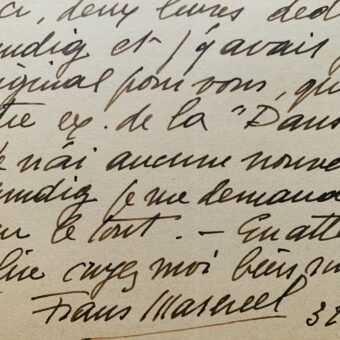 ci, deux livres déd
undig et j'y avais j
riginal pour vous, qu
tre ex. de la "Dans
Je n'ai aucune nouve
undig je me demand
le tout. — En atte
croyez moi bien
Frans Masereel 32